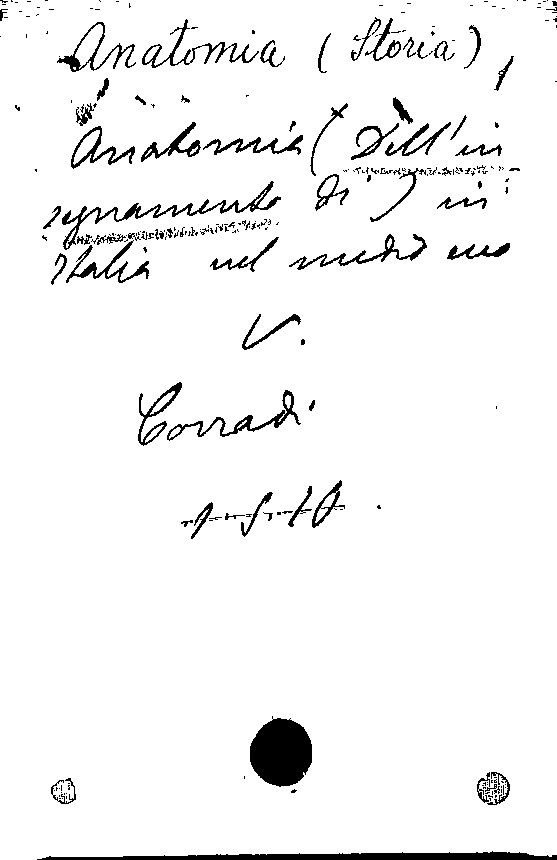 Anatomia (Storia)
Anatomia (Dell'in
segnamento di) in
Italia nel medio evo
V.
Corradi